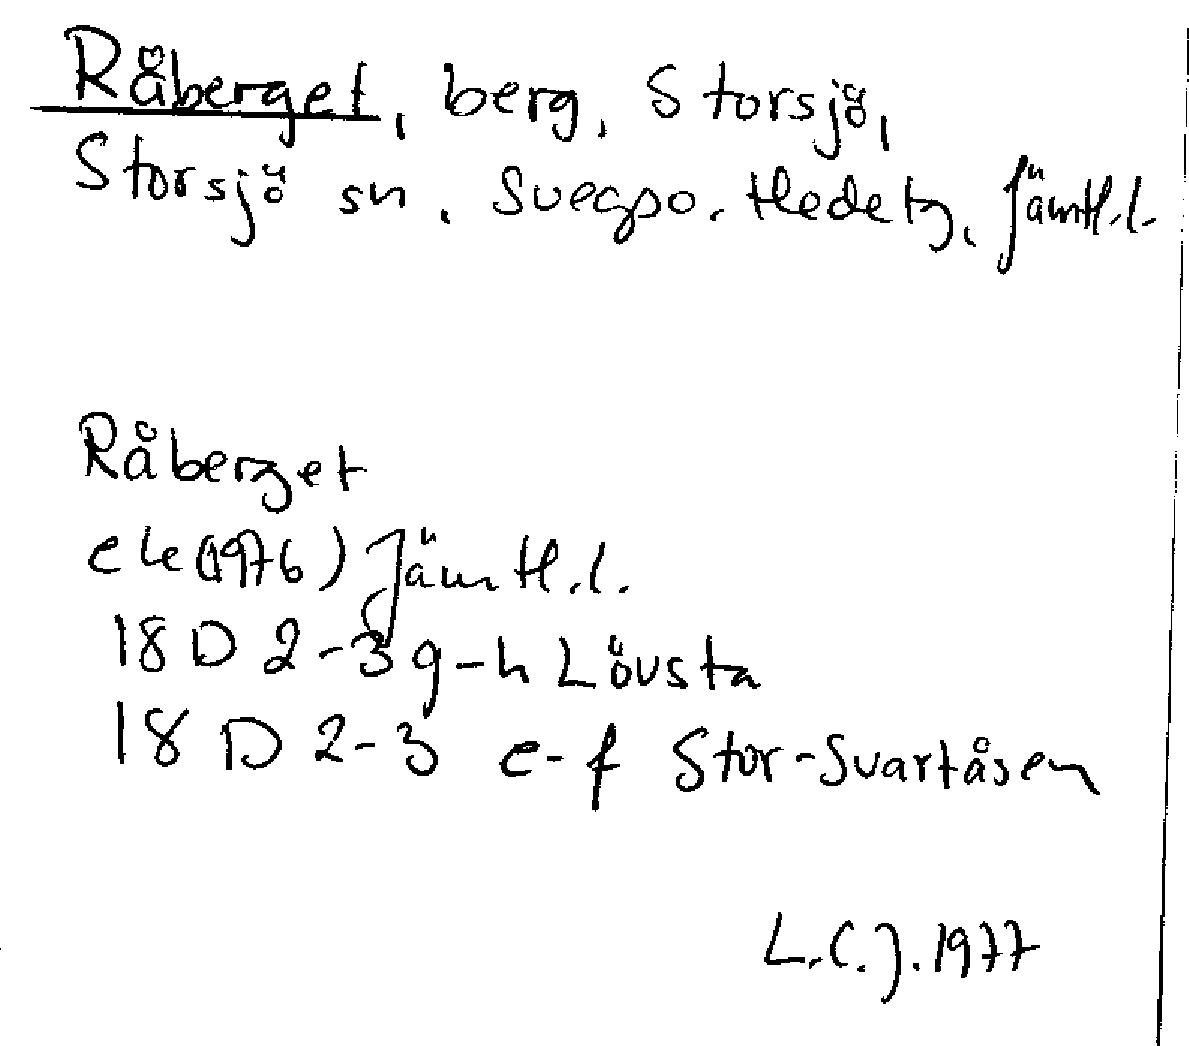 Råberget, berg, Storsjö,
Storsjö sn, Svegs po. Hede tg, Jämtl.l.
Råberget
ek (1976) Jämtl.l.
18 D 2-3 g-h Lövsta
18 D 2-3 e-f Stor-Svartåsen
L.C.J. 1977